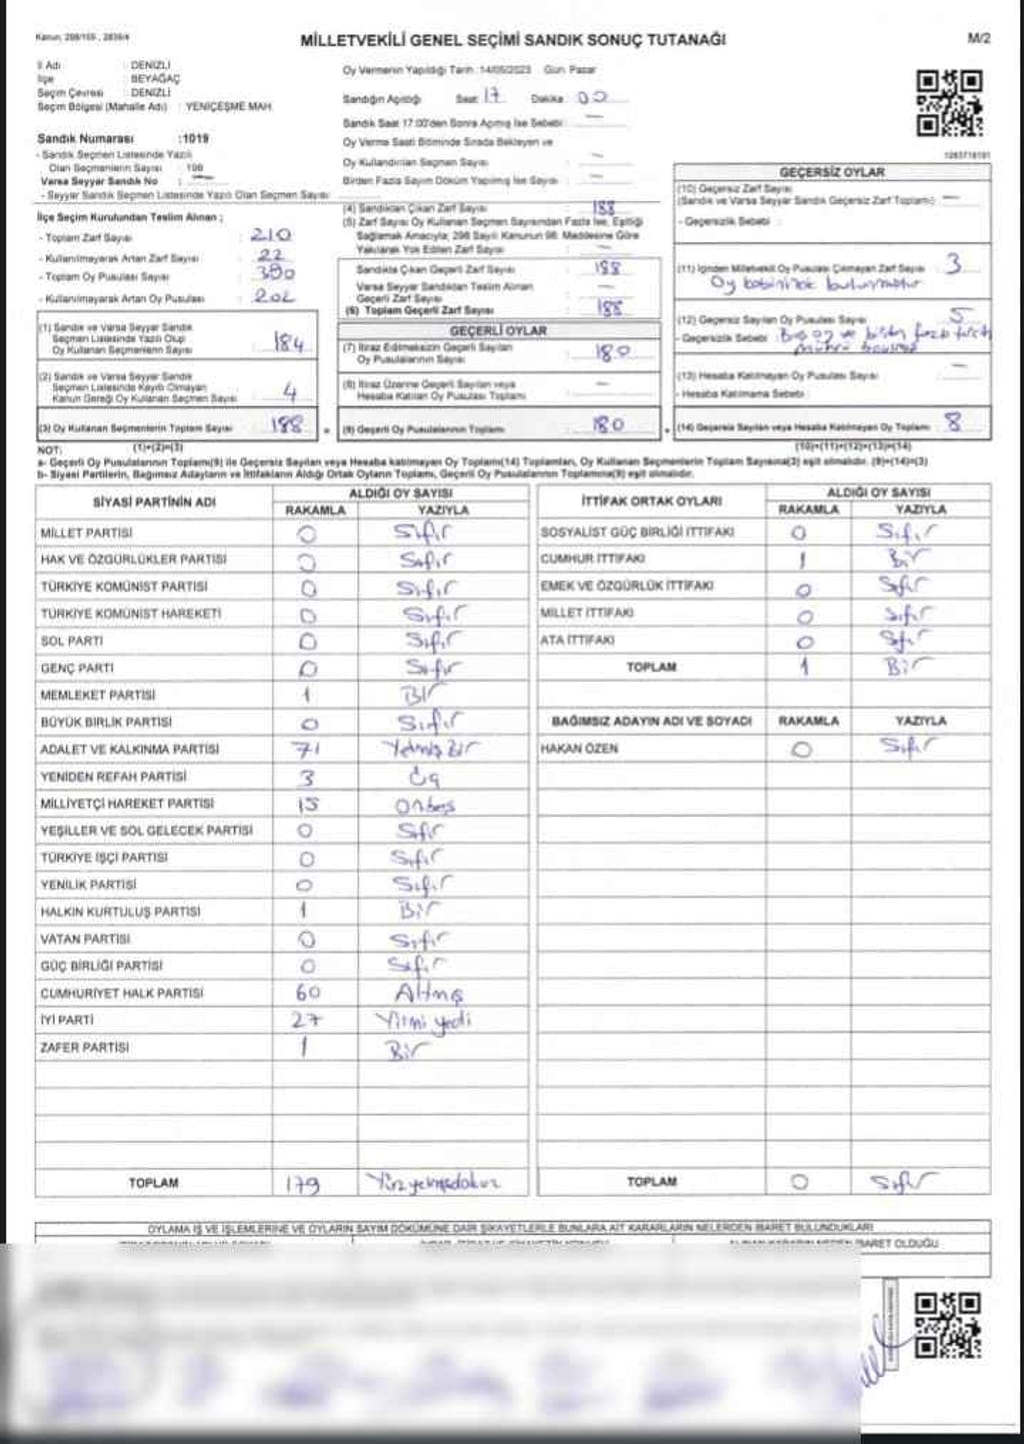 Kanun: 298/105, 2839/4
MİLLETVEKİLİ GENEL SEÇİMİ SANDIK SONUÇ TUTANAĞI
M/2
İl Adı : DENİZLİ
İlçe : BEYAĞAÇ
Seçim Çevresi : DENİZLİ
Seçim Bölgesi (Mahalle Adı) : YENİÇEŞME MAH.
Sandık Numarası :1019
- Sandık Seçmen Listesinde Yazılı
Olan Seçmenlerin Sayısı : 198
Varsa Seyyar Sandık No : —
- Seyyar Sandık Seçmen Listesinde Yazılı Olan Seçmen Sayısı
Oy Vermenin Yapıldığı Tarih :14/05/2023 Gün: Pazar
Sandığın Açıldığı Saat 17 Dakika : 00
Sandık Saat 17:00'den Sonra Açılmış İse Sebebi : —
Oy Verme Saati Bitiminde Sırada Bekleyen ve
Oy Kullandırılan Seçmen Sayısı : —
Birden Fazla Sayım Döküm Yapılmış İse Sayısı : —
İlçe Seçim Kurulundan Teslim Alınan ;
- Toplam Zarf Sayısı : 210
- Kullanılmayarak Artan Zarf Sayısı : 22
- Toplam Oy Pusulası Sayısı : 390
- Kullanılmayarak Artan Oy Pusulası : 202
(1) Sandık ve Varsa Seyyar Sandık
Seçmen Listesinde Yazılı Olup
Oy Kullanan Seçmenlerin Sayısı : 184
(2) Sandık ve Varsa Seyyar Sandık
Seçmen Listesinde Kayıtlı Olmayan
Kanun Gereği Oy Kullanan Seçmen Sayısı : 4
(3) Oy Kullanan Seçmenlerin Toplam Sayısı : 188
(1)+(2)=(3)
(4) Sandıktan Çıkan Zarf Sayısı : 188
(5) Zarf Sayısı Oy Kullanan Seçmen Sayısından Fazla İse, Eşitliği
Sağlamak Amacıyla; 298 Sayılı Kanunun 98. Maddesine Göre
Yakılarak Yok Edilen Zarf Sayısı : —
Sandıkta Çıkan Geçerli Zarf Sayısı : 188
Varsa Seyyar Sandıktan Teslim Alınan
Geçerli Zarf Sayısı : —
(6) Toplam Geçerli Zarf Sayısı : 188
GEÇERLİ OYLAR
(7) İtiraz Edilmeksizin Geçerli Sayılan
Oy Pusulalarının Sayısı : 180
(8) İtiraz Üzerine Geçerli Sayılan veya
Hesaba Katılan Oy Pusulası Toplamı : —
(9) Geçerli Oy Pusulalarının Toplamı : 180
GEÇERSİZ OYLAR
(10) Geçersiz Zarf Sayısı
(Sandık ve Varsa Seyyar Sandık Geçersiz Zarf Toplamı) : —
- Geçersizlik Sebebi :
(11) İçinden Milletvekili Oy Pusulası Çıkmayan Zarf Sayısı : 3
(12) Geçersiz Sayılan Oy Pusulası Sayısı : 5
- Geçersizlik Sebebi : Boş oy ve birden fazla tercih
(13) Hesaba Katılmayan Oy Pusulası Sayısı : —
- Hesaba Katılmama Sebebi :
(14) Geçersiz Sayılan veya Hesaba Katılmayan Oy Toplamı : 8
(10)+(11)+(12)+(13)=(14)
NOT:
a- Geçerli Oy Pusulalarının Toplamı(9) ile Geçersiz Sayılan veya Hesaba katılmayan Oy Toplamı(14) Toplamları, Oy Kullanan Seçmenlerin Toplam Sayısına(3) eşit olmalıdır. (9)+(14)=(3)
b- Siyasi Partilerin, Bağımsız Adayların ve İttifakların Aldığı Ortak Oyların Toplamı, Geçerli Oy Pusulalarının Toplamına(9) eşit olmalıdır.
SİYASİ PARTİNİN ADI ALDIĞI OY SAYISI
RAKAMLA YAZIYLA
MİLLET PARTİSİ 0 Sıfır
HAK VE ÖZGÜRLÜKLER PARTİSİ 0 Sıfır
TÜRKİYE KOMÜNİST PARTİSİ 0 Sıfır
TÜRKİYE KOMÜNİST HAREKETİ 0 Sıfır
SOL PARTİ 0 Sıfır
GENÇ PARTİ 0 Sıfır
MEMLEKET PARTİSİ 1 Bir
BÜYÜK BİRLİK PARTİSİ 0 Sıfır
ADALET VE KALKINMA PARTİSİ 71 Yetmiş Bir
YENİDEN REFAH PARTİSİ 3 Üç
MİLLİYETÇİ HAREKET PARTİSİ 15 Onbeş
YEŞİLLER VE SOL GELECEK PARTİSİ 0 Sıfır
TÜRKİYE İŞÇİ PARTİSİ 0 Sıfır
YENİLİK PARTİSİ 0 Sıfır
HALKIN KURTULUŞ PARTİSİ 1 Bir
VATAN PARTİSİ 0 Sıfır
GÜÇ BİRLİĞİ PARTİSİ 0 Sıfır
CUMHURİYET HALK PARTİSİ 60 Altmış
İYİ PARTİ 27 Yirmi yedi
ZAFER PARTİSİ 1 Bir
TOPLAM 179 Yüzyetmişdokuz
İTTİFAK ORTAK OYLARI ALDIĞI OY SAYISI
RAKAMLA YAZIYLA
SOSYALİST GÜÇ BİRLİĞİ İTTİFAKI 0 Sıfır
CUMHUR İTTİFAKI 1 Bir
EMEK VE ÖZGÜRLÜK İTTİFAKI 0 Sıfır
MİLLET İTTİFAKI 0 Sıfır
ATA İTTİFAKI 0 Sıfır
TOPLAM 1 Bir
BAĞIMSIZ ADAYIN ADI VE SOYADI RAKAMLA YAZIYLA
HAKAN ÖZEN 0 Sıfır
TOPLAM 0 Sıfır
OYLAMA İŞ VE İŞLEMLERİNE VE OYLARIN SAYIM DÖKÜMÜNE DAİR ŞİKAYETLERLE BUNLARA AİT KARARLARIN NELERDEN İBARET BULUNDUKLARI
İBARET OLDUĞU